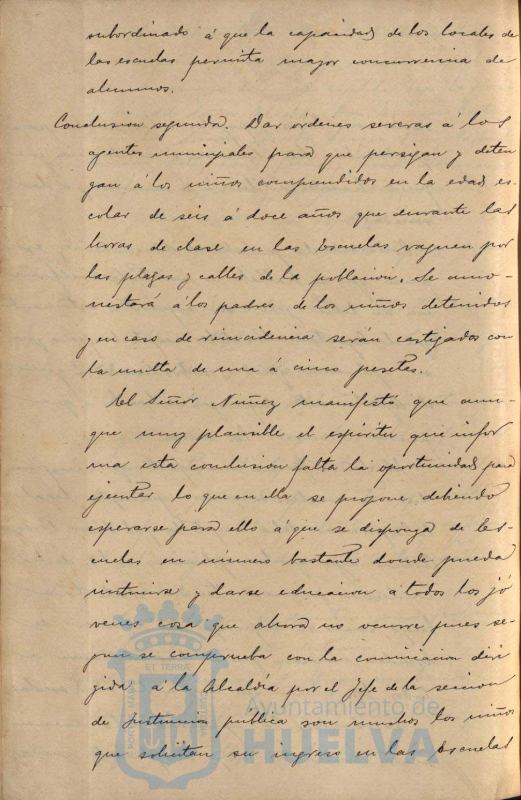 subordinado á que la capacidad de los locales de
las escuelas permita mayor concurrencia de
alumnos.
Conclusion segunda. Dar órdenes severas á los
agentes municipales para que persigan y deten
gan á los niños comprendidos en la edad es
colar de seis á doce años que durante las
horas de clase en las Escuelas vaguen por
las plazas y calles de la poblacion. Se amo-
nestará á los padres de los niños detenidos
y en caso de reincidencia serán castigados con
la multa de una á cinco pesetas.
El Señor Nuñez manifestó que aun-
que muy plausible el espíritu que infor
ma esta conclusion falta la oportunidad para
ejecutar lo que en ella se propone debiendo
esperarse para ello á que se disponga de Es-
cuelas en número bastante donde pueda
instruirse y darse educacion á todos los jó
venes cosa que ahora no ocurre pues se-
gun se comprueba con la comunicacion diri
gida á la Alcaldía por el Jefe de la seccion
de Instruccion publica son muchos los niños
que solicitan su ingreso en las Escuelas
ET TERRÆ
PORTUS MARIS
Ayuntamiento de
HUELVA